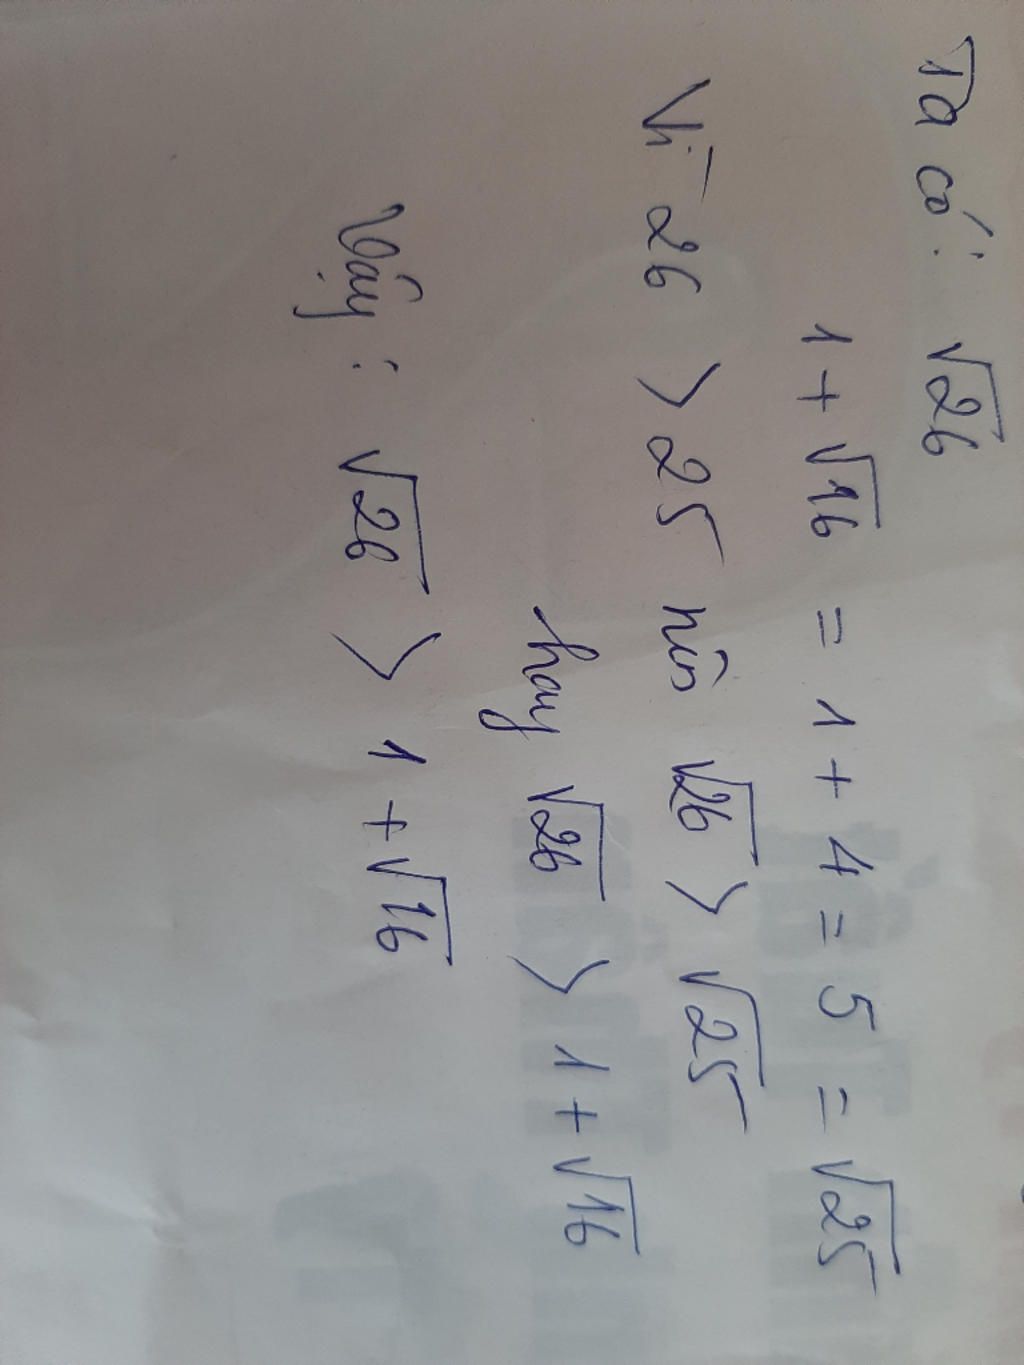 Ta có: √26
1 + √16 = 1 + 4 = 5 = √25
Vì 26 > 25 nên √26 > √25
hay √26 > 1 + √16
Vậy : √26 > 1 + √16